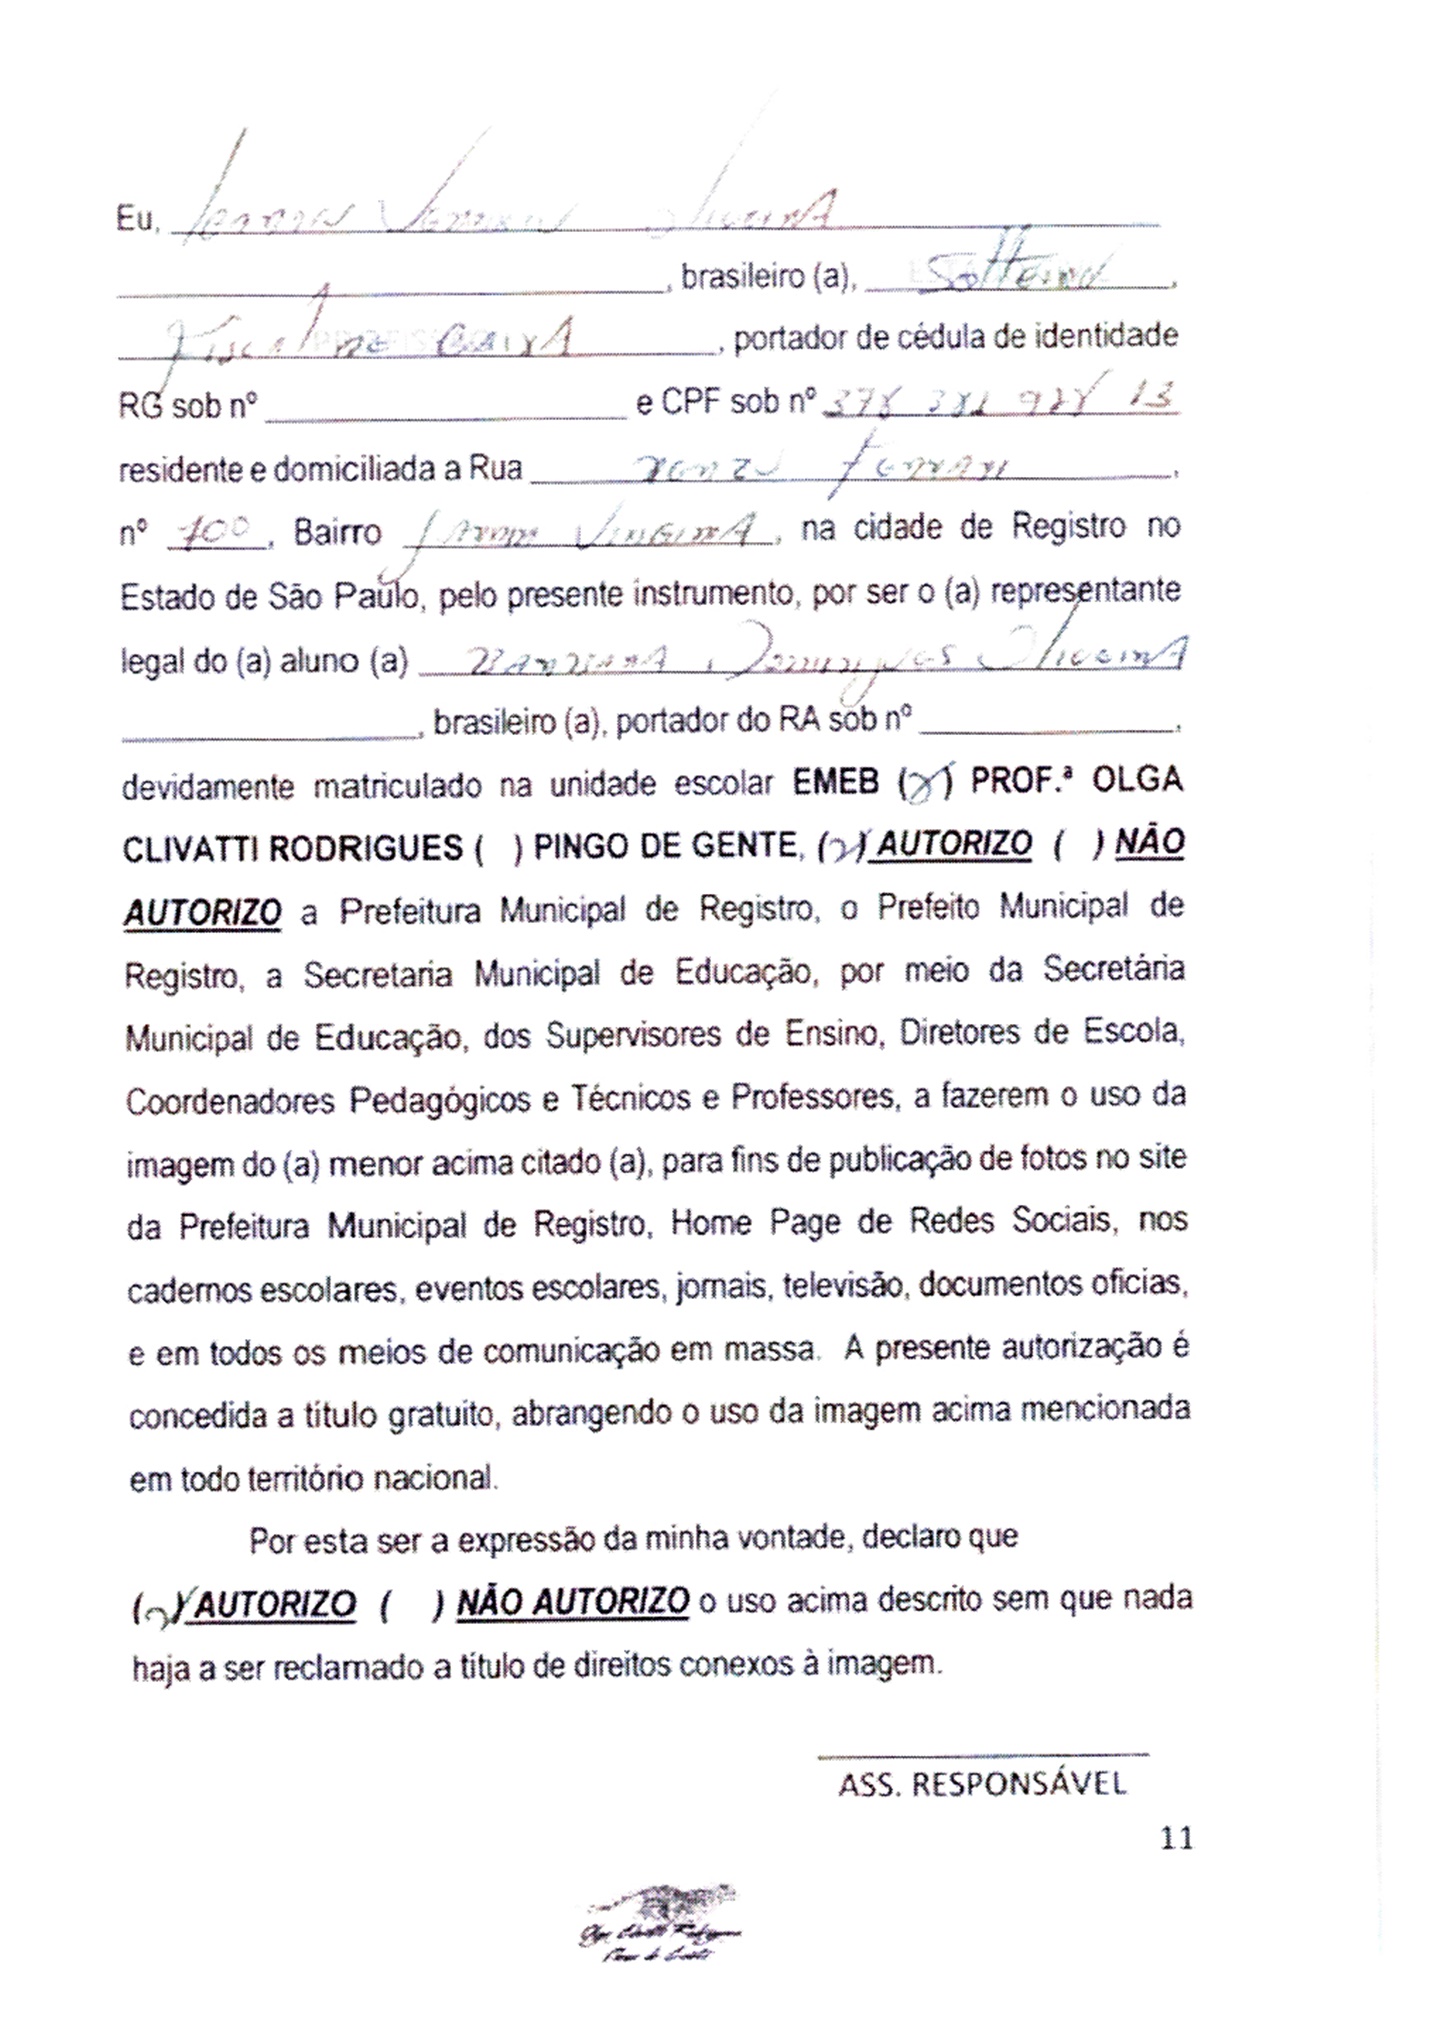 Eu, OliveirA
, brasileiro (a), Solteiro,
Fiscal DE CAixA, portador de cédula de identidade
RG sob nº e CPF sob nº 378 381 928 13
residente e domiciliada a Rua,
nº 100, Bairro VirginiA, na cidade de Registro no
Estado de São Paulo, pelo presente instrumento, por ser o (a) representante
legal do (a) aluno (a) Domingues OliveirA
, brasileiro (a), portador do RA sob nº,
devidamente matriculado na unidade escolar EMEB (X) PROF.ª OLGA
CLIVATTI RODRIGUES ( ) PINGO DE GENTE, (X) AUTORIZO ( ) NÃO
AUTORIZO a Prefeitura Municipal de Registro, o Prefeito Municipal de
Registro, a Secretaria Municipal de Educação, por meio da Secretária
Municipal de Educação, dos Supervisores de Ensino, Diretores de Escola,
Coordenadores Pedagógicos e Técnicos e Professores, a fazerem o uso da
imagem do (a) menor acima citado (a), para fins de publicação de fotos no site
da Prefeitura Municipal de Registro, Home Page de Redes Sociais, nos
cadernos escolares, eventos escolares, jornais, televisão, documentos oficias,
e em todos os meios de comunicação em massa. A presente autorização é
concedida a título gratuito, abrangendo o uso da imagem acima mencionada
em todo território nacional.
Por esta ser a expressão da minha vontade, declaro que
(X) AUTORIZO ( ) NÃO AUTORIZO o uso acima descrito sem que nada
haja a ser reclamado a título de direitos conexos à imagem.
ASS. RESPONSÁVEL
11